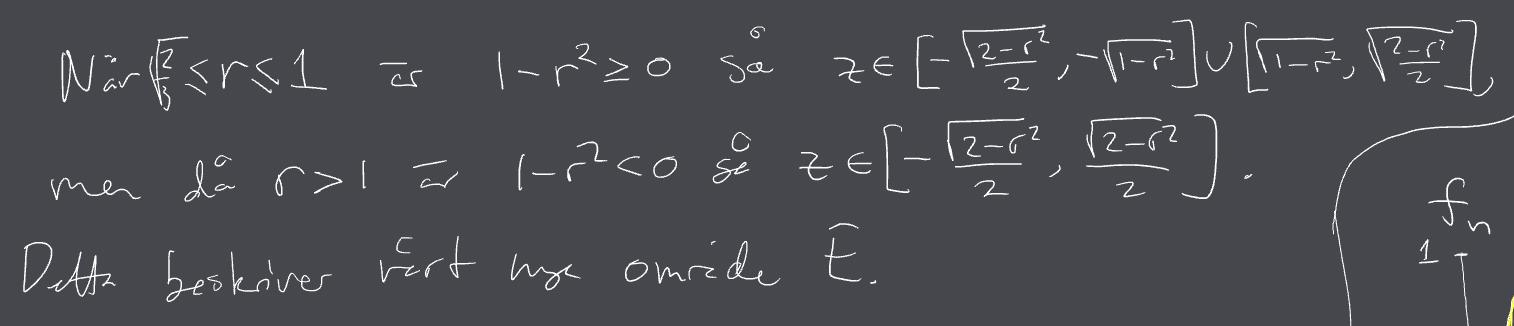 När √(2/3) ≤ r ≤ 1 är 1-r² ≥ 0 så z ∈ [-√(2-r²)/2, -√(1-r²)] ∪ [√(1-r²), √(2-r²)/2],
men då r > 1 är 1-r² < 0 så z ∈ [-√(2-r²)/2, √(2-r²)/2].
Detta beskriver vårt nya område Ẽ.
fn
1